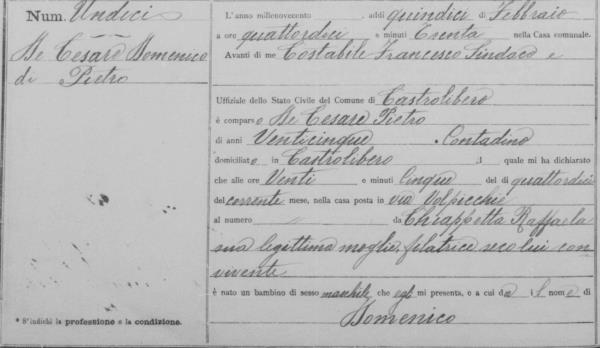 Num. Undici
De Cesare Domenico
di Pietro
* S'indichi la professione e la condizione.
L'anno millenovecento , addì quindici di Febbraio
a ore quattordici e minuti Trenta nella Casa comunale.
Avanti di me Costabile Francesco Sindaco e
Uffiziale dello Stato Civile del Comune di Castrolibero
è comparso De Cesare Pietro
di anni Venticinque , Contadino
domiciliato in Castrolibero , il quale mi ha dichiarato
che alle ore Venti e minuti Cinque del dì quattordici
del corrente mese, nella casa posta in via Volpicchie
al numero " da Chiappetta Raffaela
sua legittima moglie, filatrice seco lui con
vivente
è nato un bambino di sesso maschile che egli mi presenta, e a cui dà il nome di
Domenico